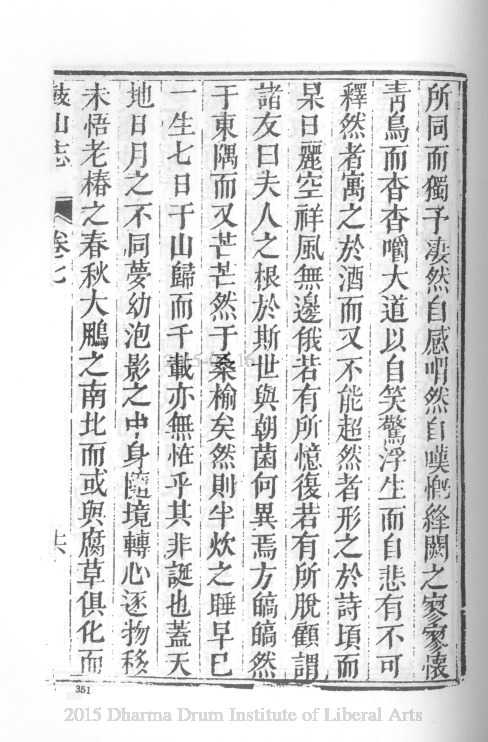 所同而獨予凄然自感喟然自嘆慨絳闕之寥寥懷
青鳥而杳杳嚼大道以自笑驚浮生而自悲有不可
釋然者寓之於酒而又不能超然者形之於詩頃而
杲日麗空祥風無邊俄若有所憶復若有所脫顧謂
諸友曰夫人之根於斯世與朝菌何異焉方皜皜然
于東隅而又芒芒然于桑榆矣然則半炊之睡早已
一生七日于山歸而千載亦無恠乎其非誕也蓋天
地日月之不同夢幼泡影之中身隨境轉心逐物移
未悟老椿之春秋大鵬之南北而或與腐草俱化而
鼓山志 卷七
351
2015 Dharma Drum Institute of Liberal Arts